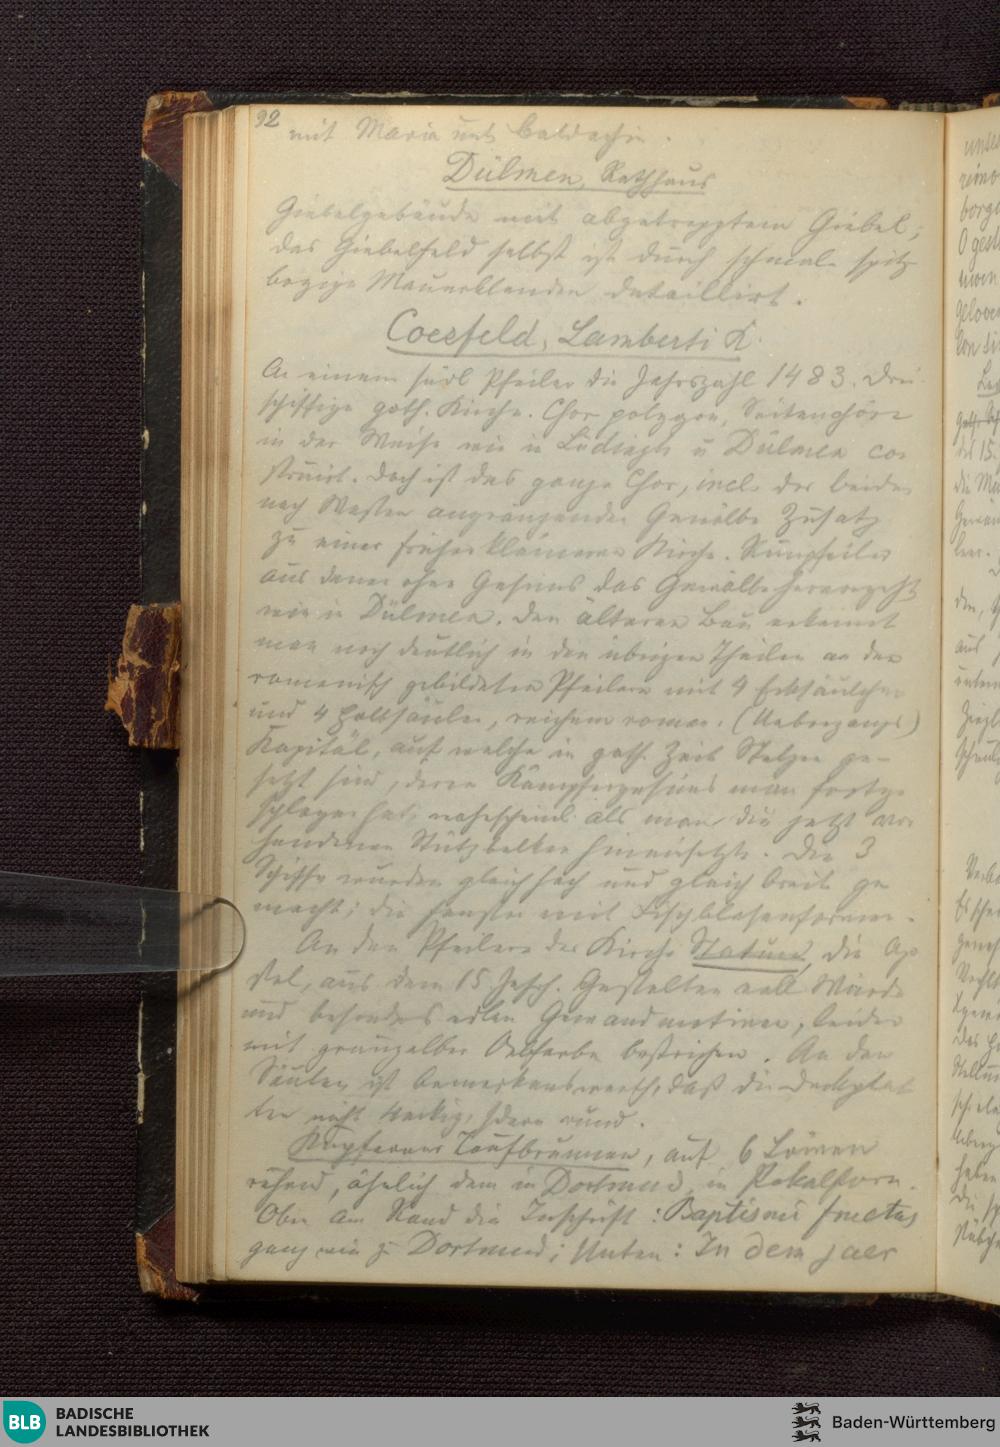 92
mit Maria und Baldachin.
Dülmen, Rathhaus
Giebelgebäude mit abgetrepptem Giebel;
das Giebelfeld selbst ist durch schmale spitz
bogige Mauerblenden detaillirt.
Coesfeld, Lamberti K.
An einem südl Pfeiler die Jahrszahl 1483. Drei
schiffige goth. Kirche. Chor polygon, Seitenchöre
in der Weise wie in Lüdingh. u Dülmen con
struirt. Doch ist das ganze Chor, incl. der beiden
nach Westen angränzenden Gewölbe Zusatz
zu einer früher kleineren Kirche. Rundpfeiler
aus denen ohne Gesims das Gewölbe hervorgeht
wie in Dülmen. Den älteren Bau erkennt
man noch deutlich in den übrigen Theilen an den
romanisch gebildeten Pfeilern mit 4 Ecksäulchen
und 4 Halbsäulen, reichem roman. (Uebergangs)
Kapitäl, auf welche in goth. Zeit Stelzen ge-
setzt sind, deren Kämpfergesims man fortge
schlagen hat, wahrscheinl. als man die jetzt vor
handenen Stützbalken hineinsetzte. Die 3
Schiffe wurden gleich hoch und gleich breit ge
macht; die Fenster mit Fischblasenformen.
An den Pfeilern der Kirche Statuen, die Apo
stel, aus dem 15 Jahrh. Gestalten voll Würde
und besonders edlen Gewandmotiven, leider
mit graugelber Oelfarbe bestrichen. An den
Säulen ist bemerkenswerth, daß die Deckplat
ten nicht 4eckig, sdern rund.
Kupferner Taufbrunnen, auf 6 Löwen
ruhend, ähnlich dem in Dortmund, in Pokalform.
Oben am Rand die Inschrift: Baptismi fructus
ganz wie zu Dortmund; Unten: In dem jaer
BLB BADISCHE
LANDESBIBLIOTHEK
Baden-Württemberg